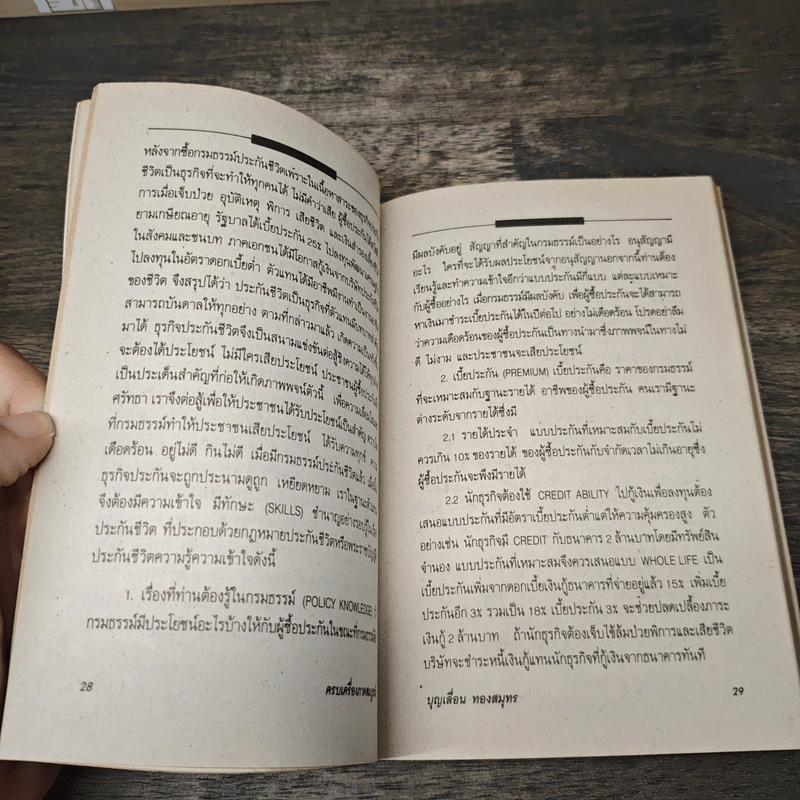 หลังจากซื้อกรมธรรม์ประกันชีวิตเพราะในเนื้อหาสาระของธุรกิจประกัน
ชีวิตเป็นธุรกิจที่จะทำให้ทุกคนได้ ไม่มีคำว่าเสีย ผู้ซื้อประกันได้
การเมื่อเจ็บป่วย อุบัติเหตุ พิการ เสียชีวิต และเงินสำรอง
ยามเกษียณอายุ รัฐบาลได้เบี้ยประกัน 25% ไปลงทุนพัฒนา
ในสังคมและชนบท ภาคเอกชนได้มีโอกาสกู้เงินจากบริษัทประกัน
ไปลงทุนในอัตราดอกเบี้ยต่ำ ตัวแทนได้มีอาชีพมีงานทำเป็น
ของชีวิต จึงสรุปได้ว่า ประกันชีวิตเป็นธุรกิจที่ตัวแทนมีบทบาท
สามารถบันดาลให้ทุกอย่าง ตามที่กล่าวมาแล้ว เกิดความเป็นจริง
มาได้ ธุรกิจประกันชีวิตจึงเป็นสนามแข่งขันต่อสู้ชิงความได้
จะต้องได้ประโยชน์ ไม่มีใครเสียประโยชน์ ประชาชนผู้ซื้อ
เป็นประเด็นสำคัญที่ก่อให้เกิดภาพพจน์ตัวนี้ เพื่อความ
ศรัทธา เราจึงต่อสู้เพื่อให้ประชาชนได้รับประโยชน์เป็นสำคัญ
ที่กรมธรรม์ทำให้ประชาชนเสียประโยชน์ ได้รับความทุกข์
เดือดร้อน อยู่ไม่ดี กินไม่ดี เมื่อมีกรมธรรม์ประกันชีวิตแล้ว
ธุรกิจประกันจะถูกประนามดูถูก เหยียดหยาม เราในฐานะตัวแทน
จึงต้องมีความเข้าใจ มีทักษะ (SKILLS) ชำนาญอย่างรอบรู้ใน
ประกันชีวิต ที่ประกอบด้วยกฎหมายประกันชีวิตหรือพระราชบัญญัติ
ประกันชีวิตความรู้ความเข้าใจดังนี้
1. เรื่องที่ท่านต้องรู้ในกรมธรรม์ (POLICY KNOWLEDGE)
กรมธรรม์มีประโยชน์อะไรบ้างให้กับผู้ซื้อประกันในขณะที่กรมธรรม์
28
ครบเครื่อง
มีผลบังคับอยู่ สัญญาที่สำคัญในกรมธรรม์เป็นอย่างไร อนุสัญญามี
อะไร ใครที่จะได้รับผลประโยชน์จากอนุสัญญานอกจากนี้ท่านต้อง
เรียนรู้และทำความเข้าใจอีกว่าแบบประกันมีกี่แบบ แต่ละแบบเหมาะ
กับผู้ซื้ออย่างไร เมื่อกรมธรรม์มีผลบังคับ เพื่อผู้ซื้อประกันจะได้สามารถ
หาเงินมาชำระเบี้ยประกันได้ในปีต่อไป อย่างไม่เดือดร้อน โปรดอย่าลืม
ว่าความเดือดร้อนของผู้ซื้อประกันเป็นทางนำมาซึ่งภาพพจน์ในทางไม่
ดี ไม่งาม และประชาชนจะเสียประโยชน์
2. เบี้ยประกัน (PREMIUM) เบี้ยประกันคือ ราคาของกรมธรรม์
ที่จะเหมาะสมกับฐานะรายได้ อาชีพของผู้ซื้อประกัน คนเรามีฐานะ
ต่างระดับจากรายได้ซึ่งมี
2.1 รายได้ประจำ แบบประกันที่เหมาะสมกับเบี้ยประกันไม่
ควรเกิน 10% ของรายได้ ของผู้ซื้อประกันกับจำกัดเวลาไม่เกินอายุซึ่ง
ผู้ซื้อประกันจะพึงมีรายได้
2.2 นักธุรกิจต้องใช้ CREDIT ABILITY ไปกู้เงินเพื่อลงทุนต้อง
เสนอแบบประกันที่มีอัตราเบี้ยประกันต่ำแต่ให้ความคุ้มครองสูง ตัว
อย่างเช่น นักธุรกิจมี CREDIT กับธนาคาร 2 ล้านบาทโดยมีทรัพย์สิน
จำนอง แบบประกันที่เหมาะสมจึงควรเสนอแบบ WHOLE LIFE เป็น
เบี้ยประกันเพิ่มจากดอกเบี้ยเงินกู้ธนาคารที่จ่ายอยู่แล้ว 15% เพิ่มเบี้ย
ประกันอีก 3% รวมเป็น 18% เบี้ยประกัน 3% จะช่วยปลดเปลื้องภาระ
เงินกู้ 2 ล้านบาท ถ้านักธุรกิจต้องเจ็บไข้ล้มป่วยพิการและเสียชีวิต
บริษัทจะชำระหนี้เงินกู้แทนนักธุรกิจที่กู้เงินจากธนาคารทันที
บุญเลื่อน ทองสมุทร
29